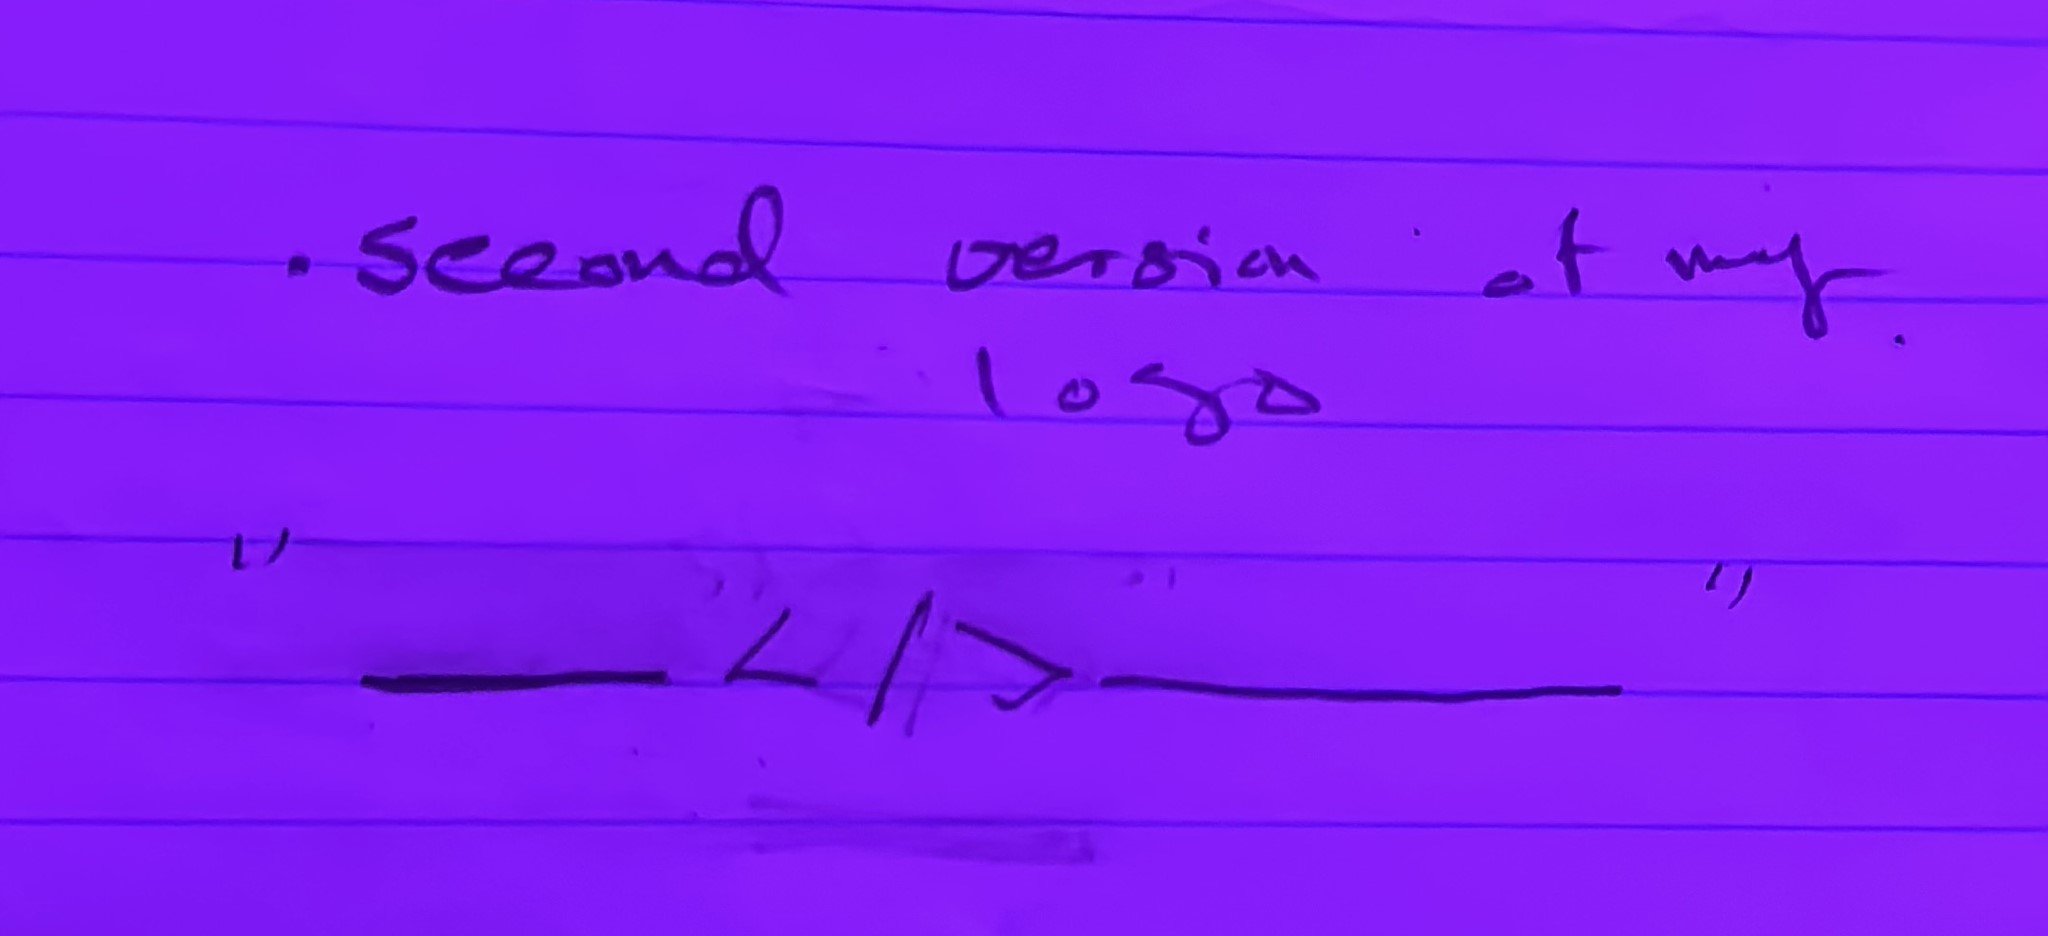 . second version of my
logo
" ___ </> ___ "